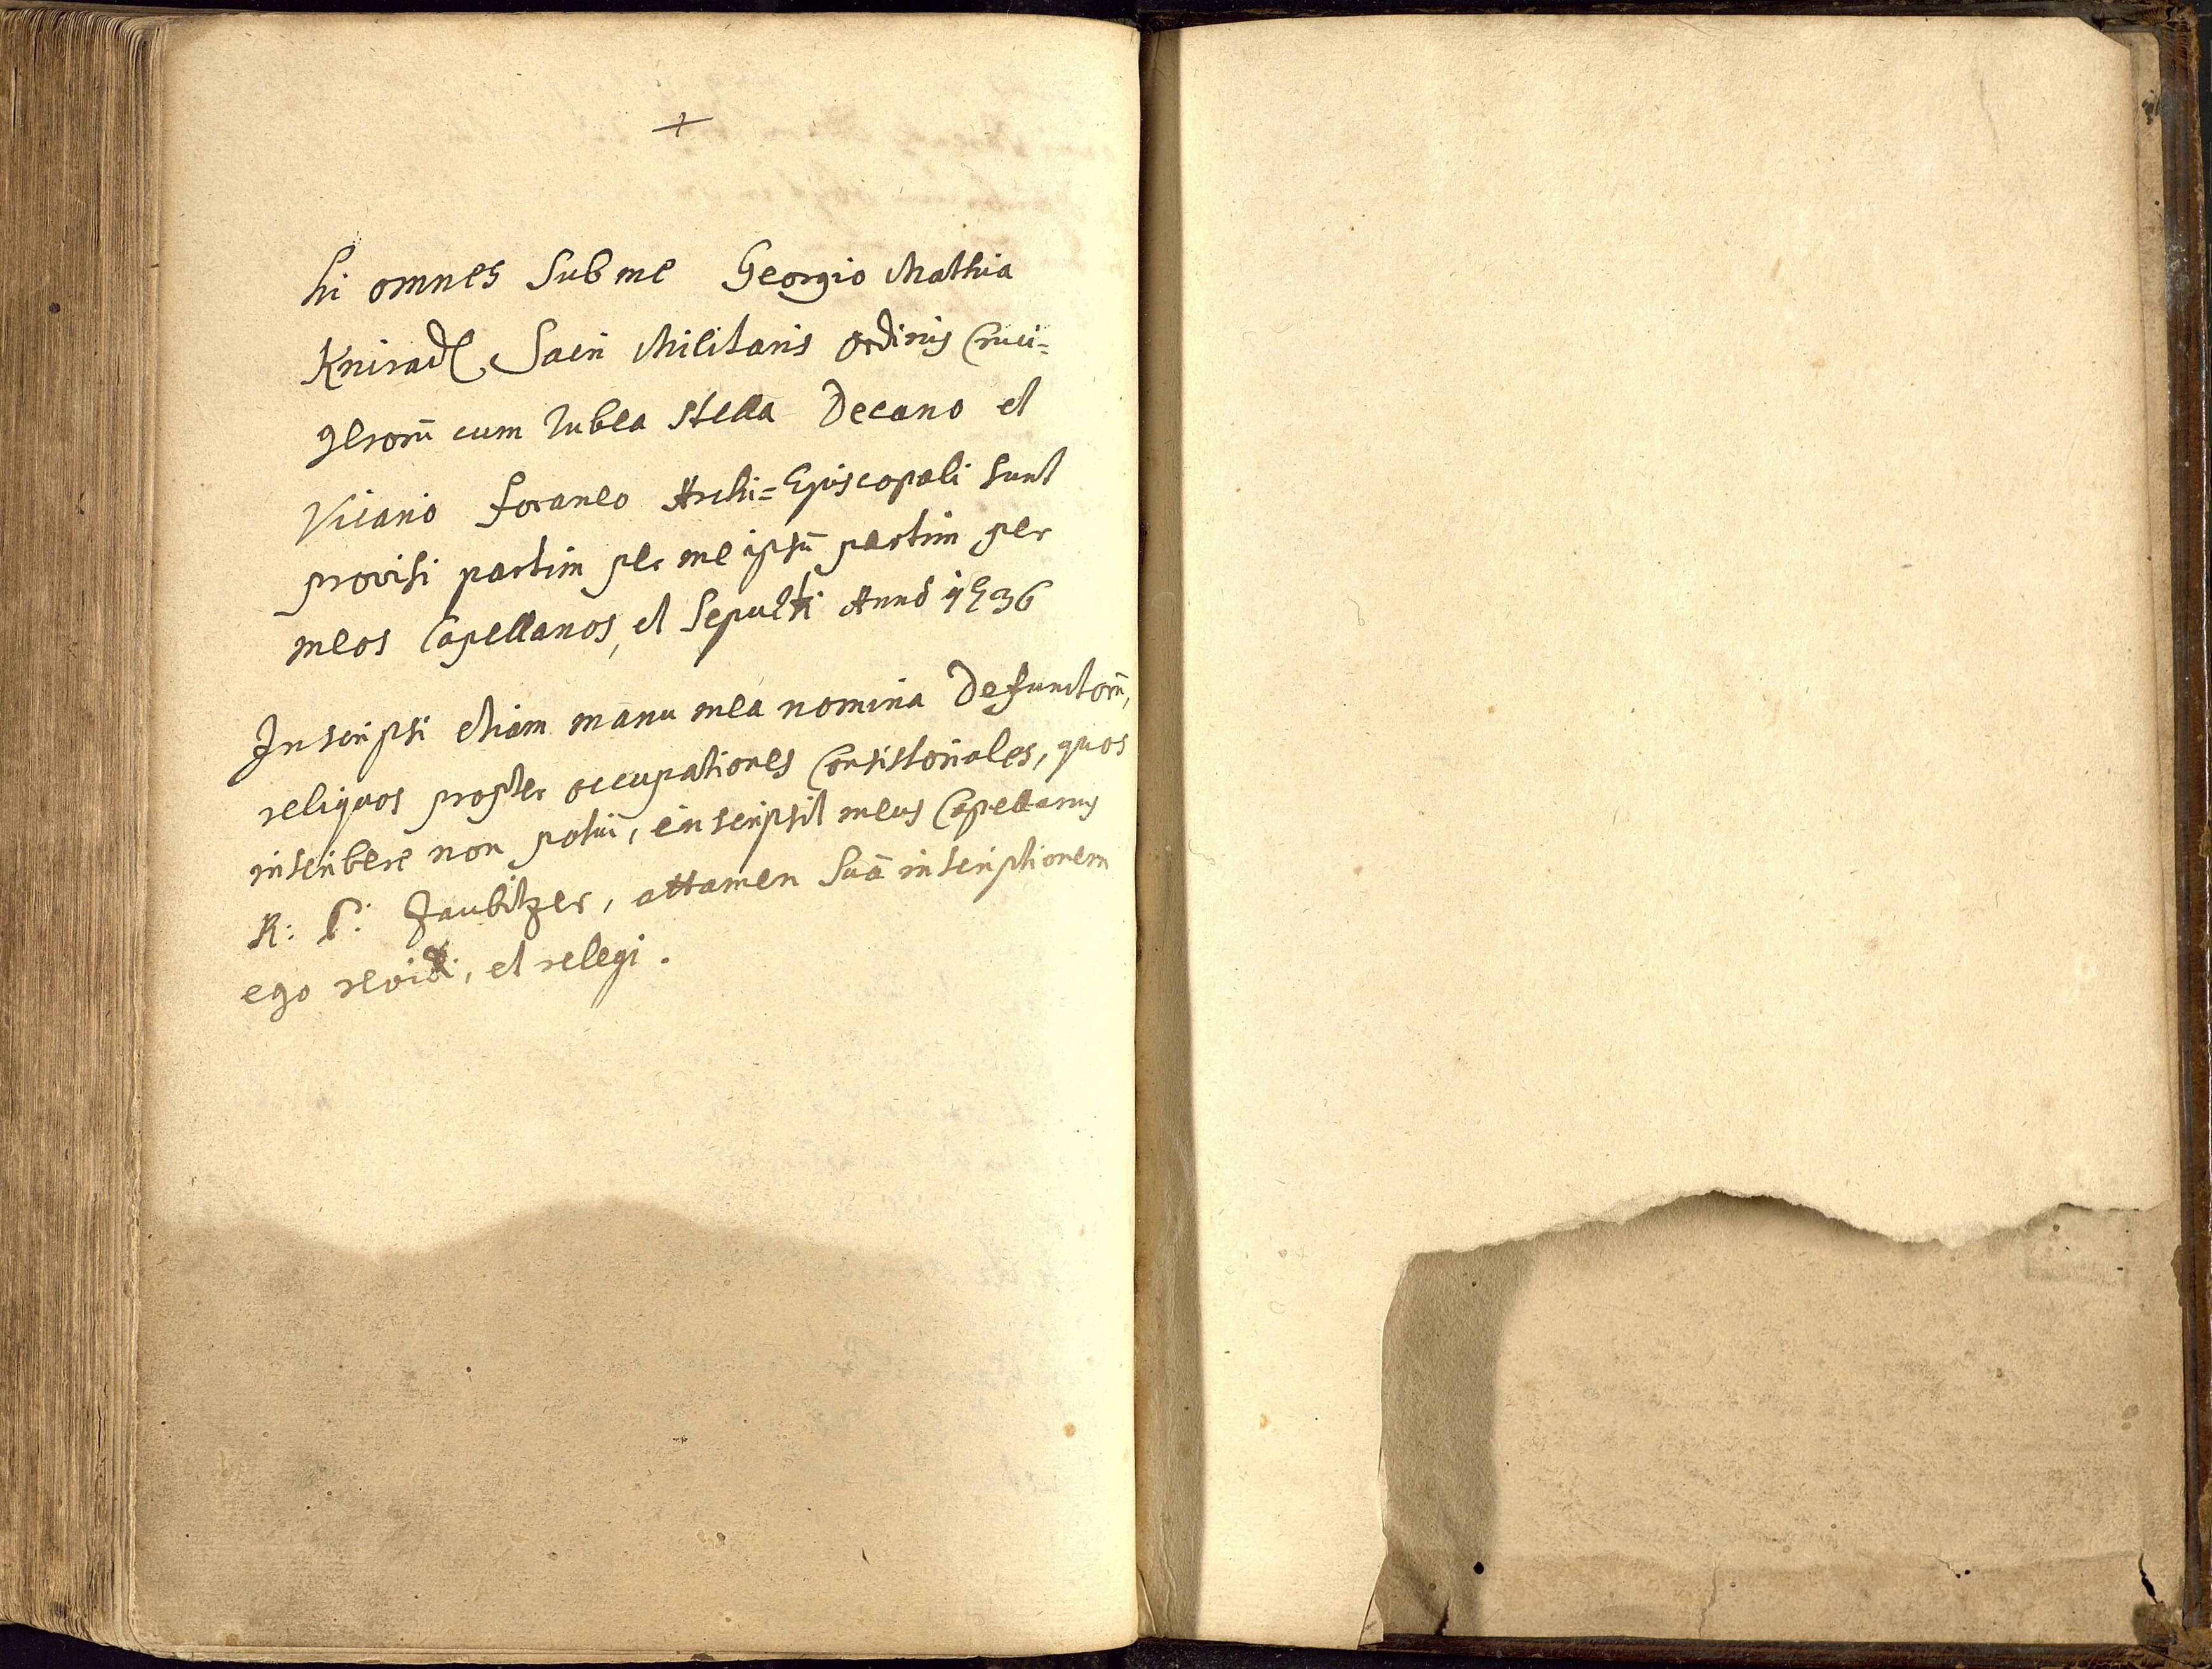 +
hi omnes sub me Georgio Mathia
Sacri Militaris ordinis Cruci=
gerorū cum rubea stella Decano et
Vicario foraneo Archi=Episcopali sunt
provisi partim per me ipsū partim per
meos Capellanos, et sepulti Anno 1736
Inscripsi etiam manu mea nomina Defunctorū,
reliquos propter occupationes Consistoriales, quos
inscribere non potui, inscripsit meus Capellanus
R: P: Zaubitzer, attamen suā inscriptionem
ego revidi, et relegi.